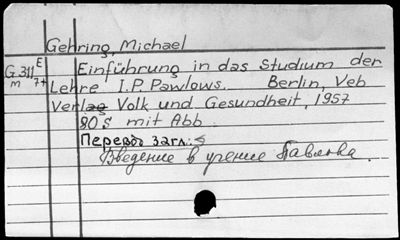 Gehring, Michael
G 311 E Einführung in das Studium der
m 7+ Lehre I.P. Pawlows. Berlin, Veb
Verlag Volk und Gesundheit, 1957
80 S mit Abb.
Перевод загл.:
Введение в учение Павлова.